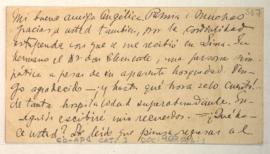 Mi buena amiga Angélica Palma: Muchas
gracias a usted también, por la cordialidad
estupenda con que a me recibió en Lima. Su
hermano el Dr. Don Clemente, una persona sim-
pática a pesar de su aparente hosquedad. Ven-
go agradecido — y hasta qué hora solo cuanto!
de tanta hospitalidad superabundante. En-
seguida escribiré mis recuerdos. ¿Qué ha-
ce usted? He leído que piensa regresar al